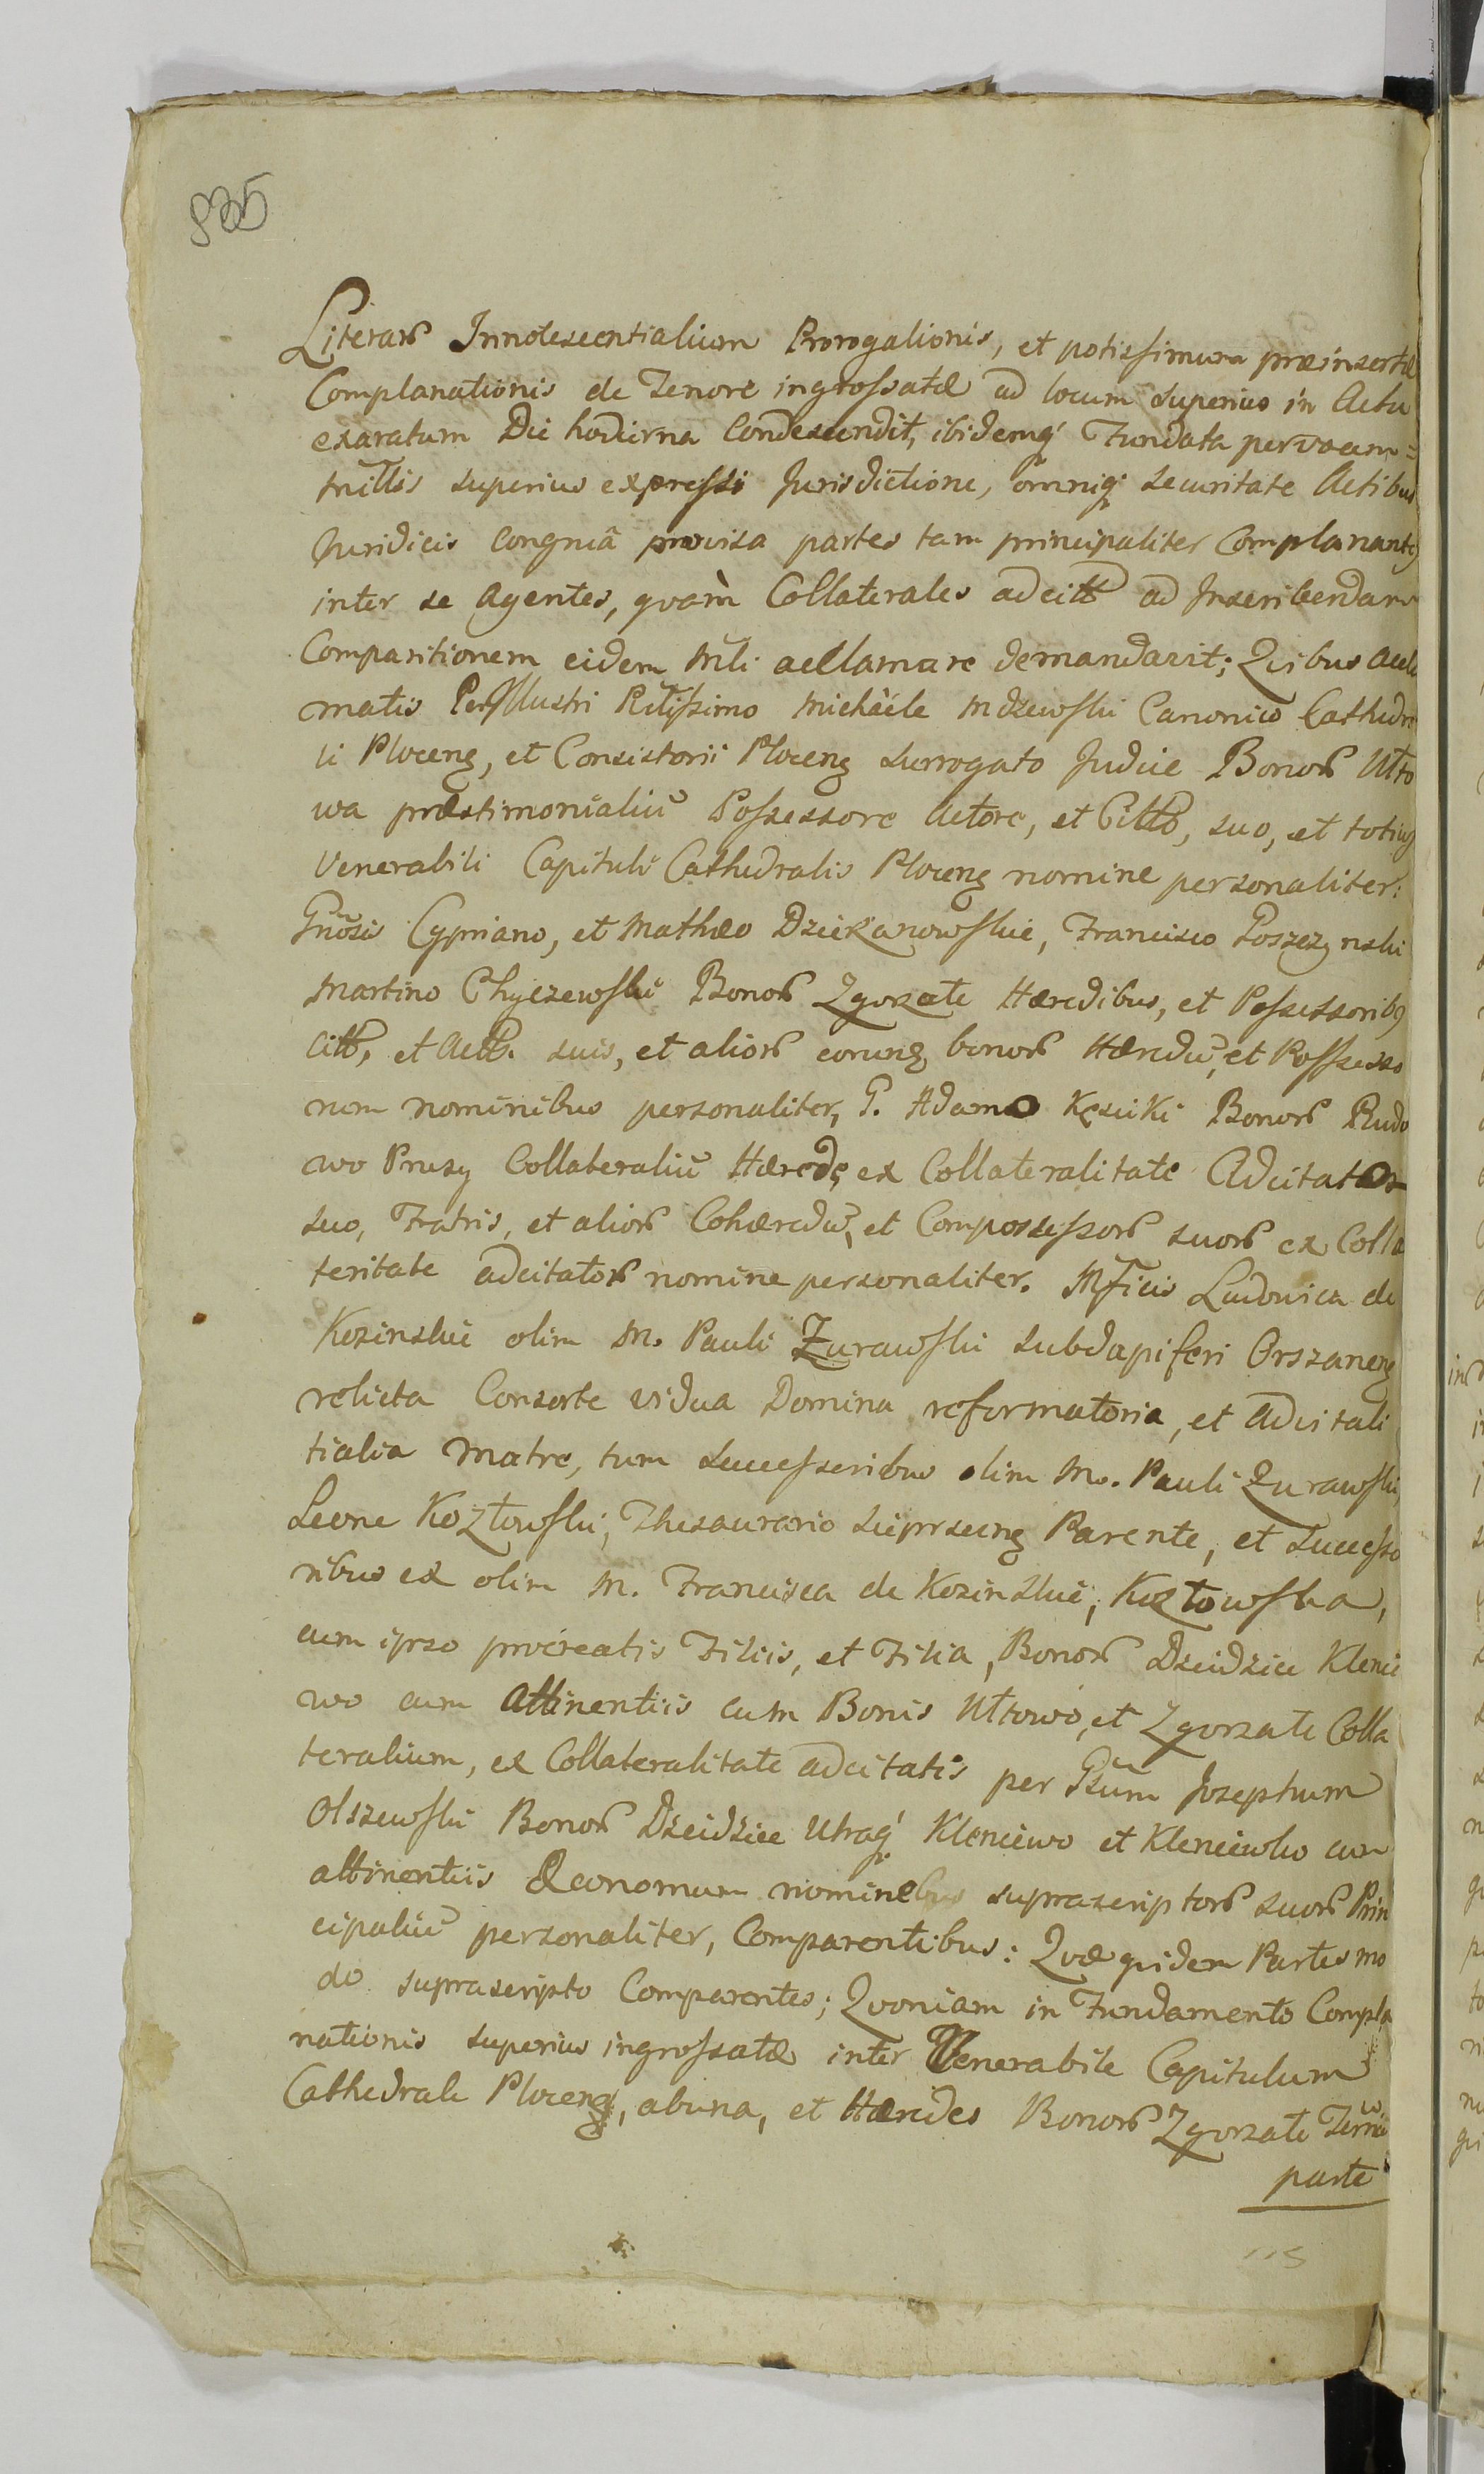 835
Literarũ Innotescentialium Prorogationis, et potissimum præinsertæ
Complanationis de Tenore ingrossatæ ad locum superius in Actu
exaratum Die hodierna Condescendit, ibidemq́ Fundata per vocem
mĩllis superius expressi Jurisdictione, omniq́ securitate Actibus
Juridicis congruâ provisa partes tam principaliter Complanantes
inter se Agentes, quàm Collaterales adcitt ad Inscribendam
Comparitionem eidem Mĩli acclamare demandavit; Quibus accla
matis Perillustri Rñdissimo Michaële Mdzewski Canonico Cathedra
li Plocenꝫ, et Consistorii Plocenꝫ Surrogato Judice Bonorũ Ułto
wa præstimonialiũ Possessore Actore, et Citto, suo, et totius
Venerabili Capituli Cathedralis Plocenꝫ nomine personaliter:
Gñosis Cypriano, et Mathæo Dziekanowskie, Francisco Goszczynski
Martino Chyczewski Bonorũ Zgorzate Hæredibus, et Possessoribꝯ
Citt, et Actt. suis, et aliorũ eorunꝫ bonorũ Hæredũ, et Possesso
rum nominibus personaliter, G. Adamo Kęsicki Bonorũ Rudo
wo Prusy Collateraliũ Hærede, ex Collateralitate Adcitato
suo, Fratris, et aliorũ Cohæredũ, et Compossessorũ suorũ ex Colla
teritate adcitatorũ nomine personaliter. Mficis Ludovica de
Kozinskie olim M. Pauli Zurawski Subdapiferi Orszanenꝫ
relicta Consorte vidua Domina reformatoria, et advitali
tialia Matre, tum Successoribus olim M. Pauli Zurawski,
Leone Kozłowski, Thesaurario Sieprscenꝫ Parente, et Successo
ribus ex olim M. Francisca de Kozinskie, Kozłowska,
cum ipso procreatis Filiis, et Filia, Bonorũ Dzeidzice Klenie
wo cum Attinentiis cum Bonis Ułtowo, et Zgorzate Colla
teralium, ex Collateralitate adcitatis per Gsũm Josephum
Olszewski Bonorũ Dzeidzice Utraq́ Kleniewo et Kleniewko cum
attinentiis Œconomum nominebus suprascriptorũ suorũ Prin
cipaliũ personaliter, Comparentibus: Quæ quidem Partes mo
do suprascripto Comparentes; Quoniam in Fundamento Compla
nationis superius ingrossatæ inter Venerabile Capitulum
Cathedrale Plocenꝫ, ab una, et Hæredes Bonorũ Zgorzate
parte
115